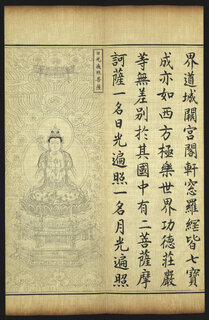 界道城闕宮閣軒窓羅網皆七寶
成亦如西方極樂世界功德莊嚴
等無差別於其國中有二菩薩摩
訶薩一名日光遍照一名月光遍照
日光遍照菩薩